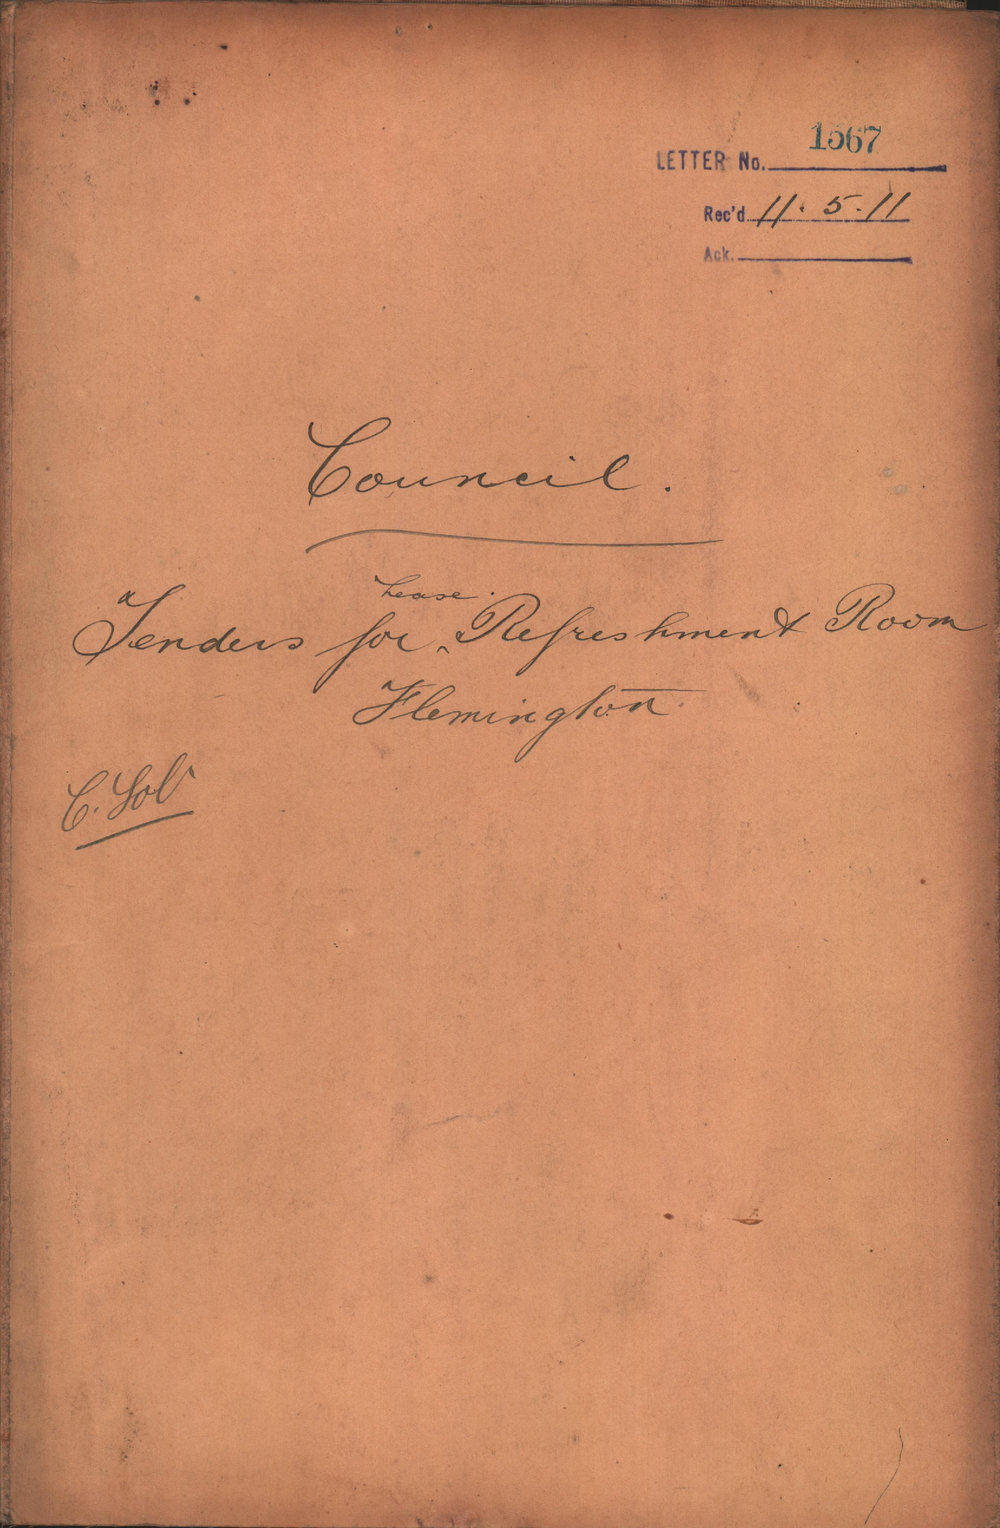 LETTER No. 1567
Rec'd 11.5.11
Ack.
Council.
Lease
Tenders for ‸ Refreshment Room
Flemington
C. Sol